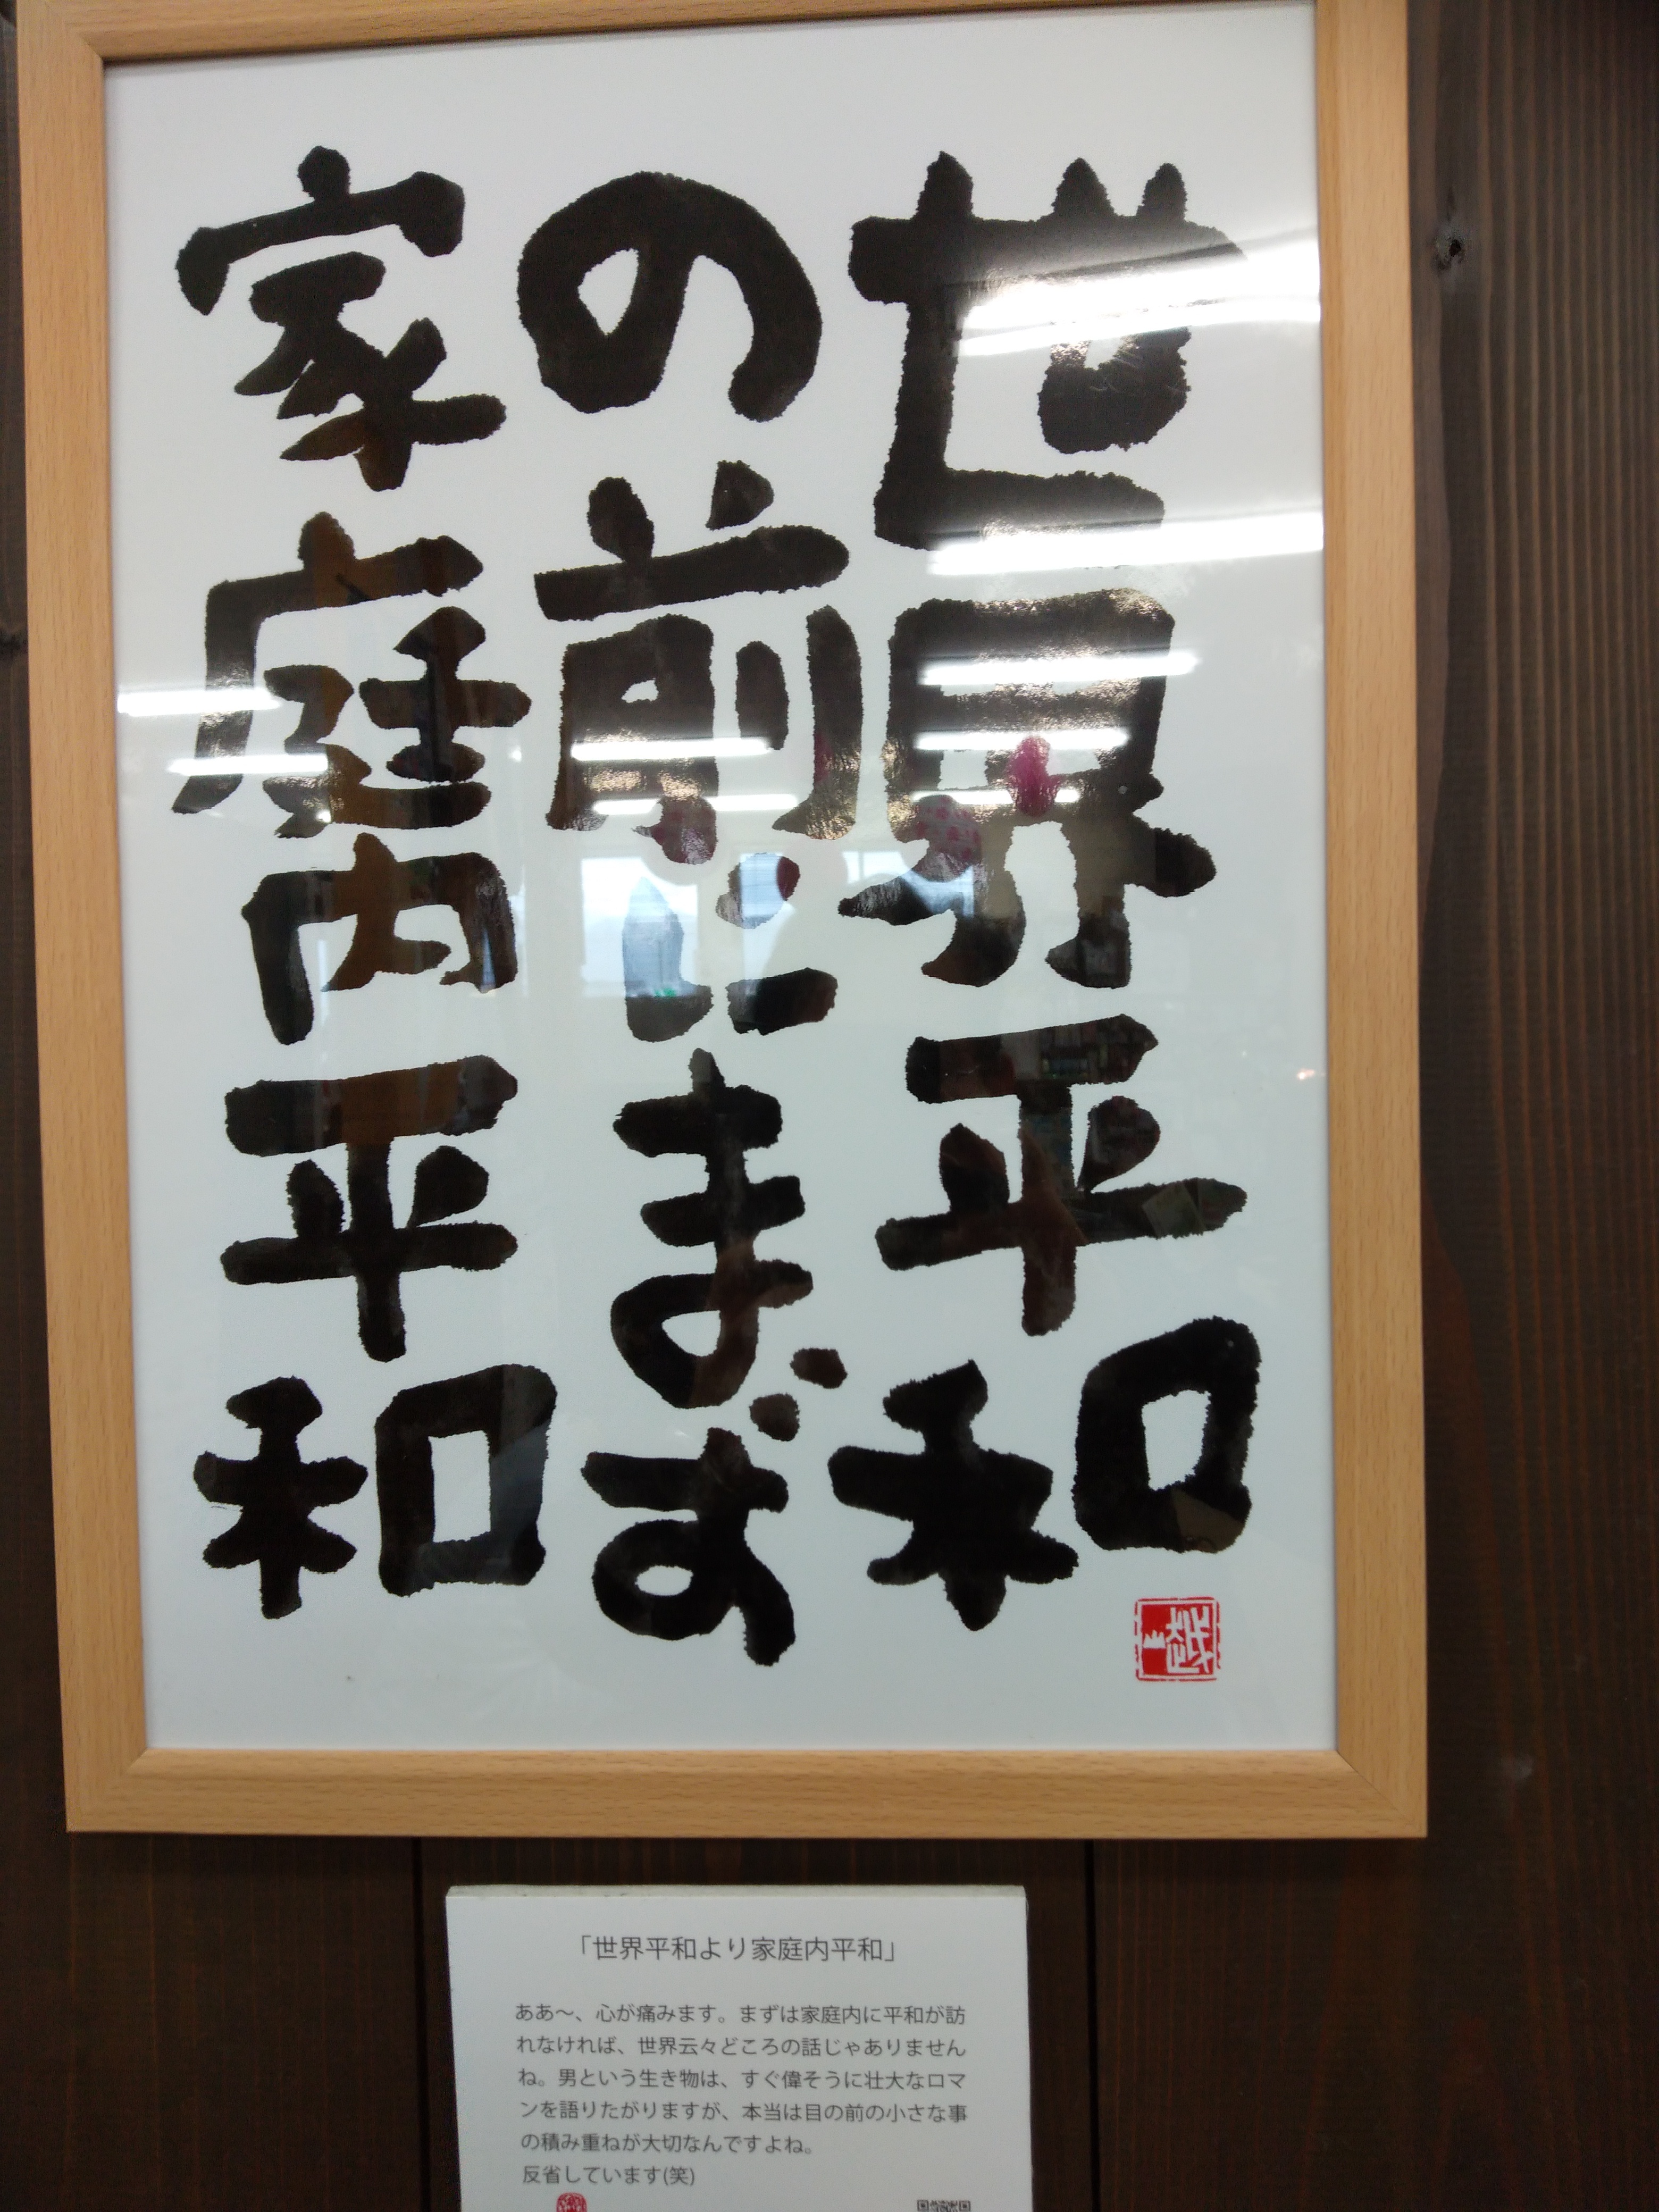 世界平和
の前にまず
家庭内平和
越山
「世界平和より家庭内平和」
ああ～、心が痛みます。まずは家庭内に平和が訪
れなければ、世界云々どころの話じゃありません
ね。男という生き物は、すぐ偉そうに壮大なロマ
ンを語りたがりますが、本当は目の前の小さな事
の積み重ねが大切なんですよね。
反省しています(笑)